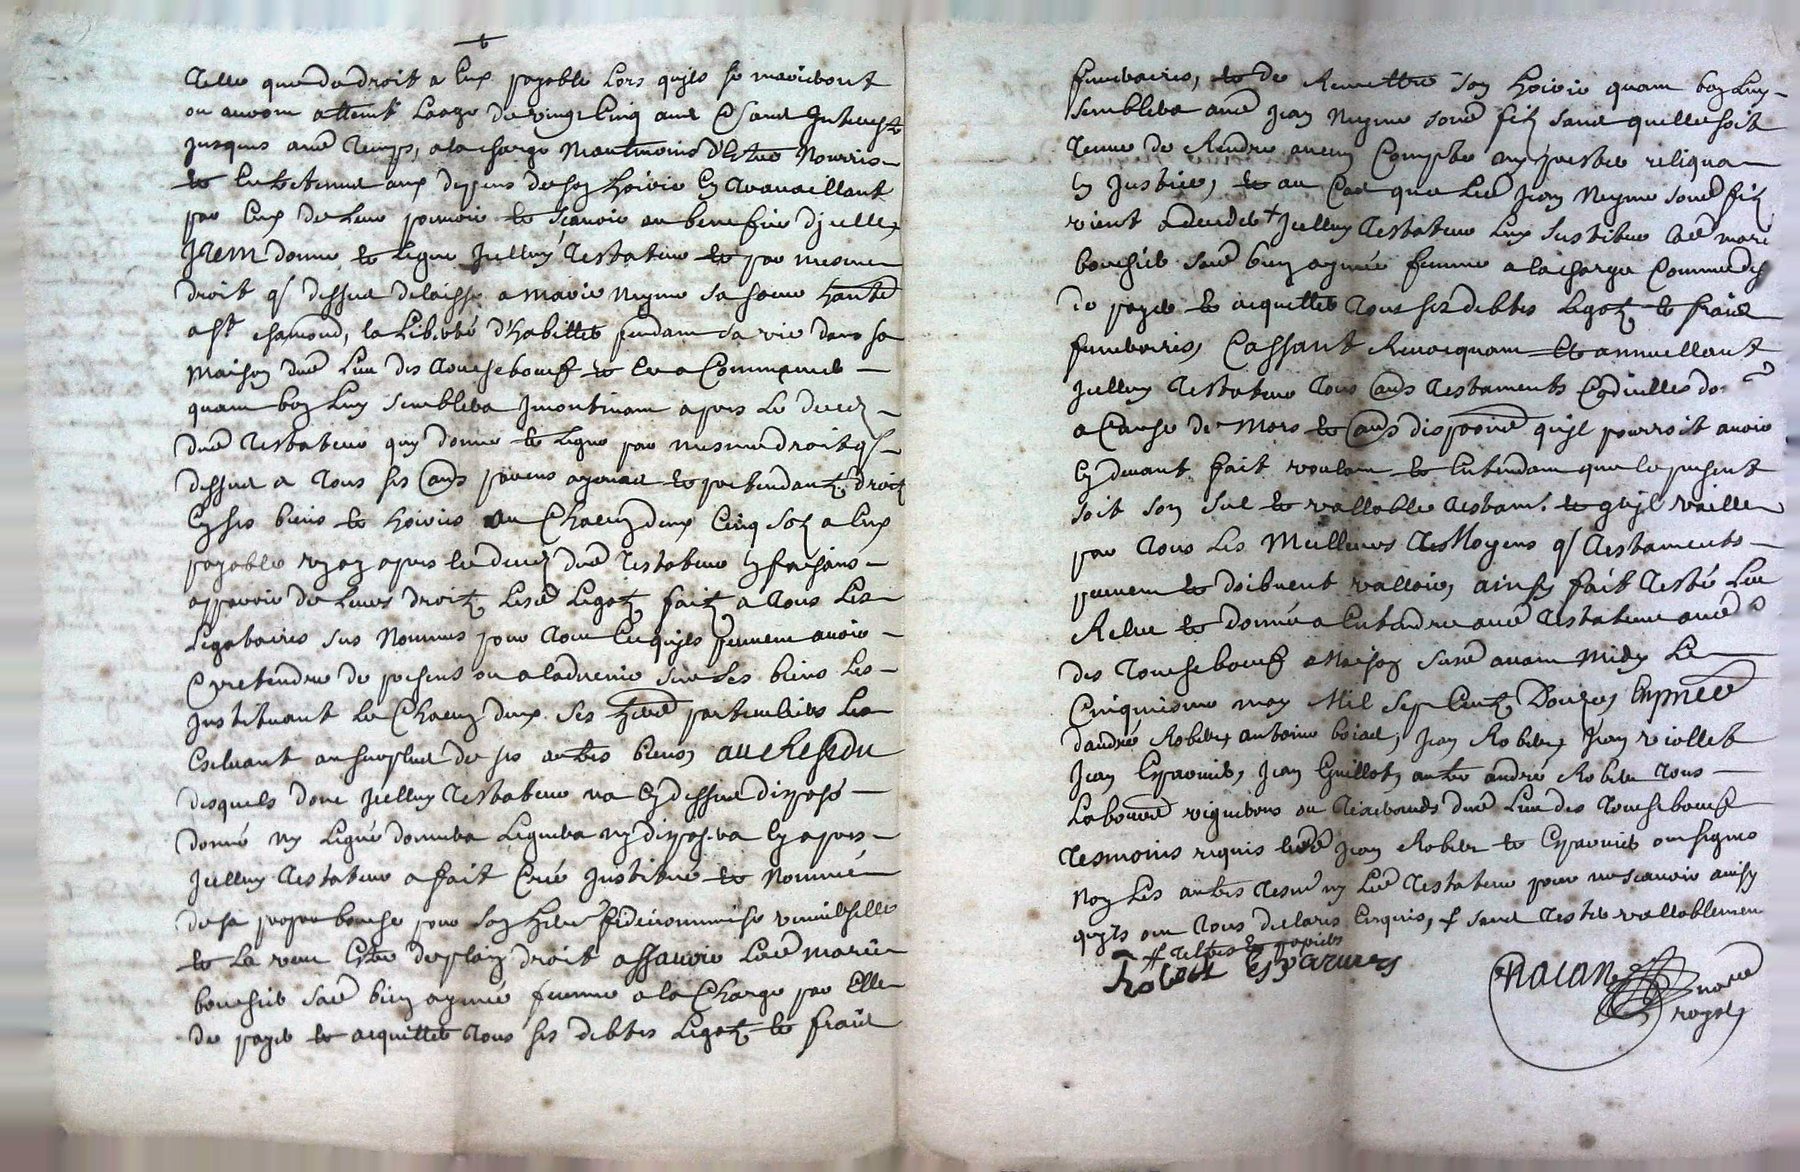 telle que de droit a Eux payable Lors quils se marieront
ou auront atteint Laage de vingt Cinq ans Et sans Interest
jusques aud temps, a la charge Neantmoins d'Estre Nourris
et Entretenus aux depens de son hoirie En travaillant
par Eux de Leur pouvoir et sçavoir au benefice d'jcelle,
Item donne et Legue jcelluy testateur et par mesme
droit q dessus delaisse a Marie Neyme sa soeur hante
a St chamond, la Liberté d'habitter pendant sa vie dans sa
maison dud Lieu des touseboeuf et
quant bon Luy semblera Jncontinant apres Le deced
dud testateur quy donne et Legue par mesme droit q
dessus a tous ses aus parens ayants et pretendants droit
En ses biens et hoirie a Chacun deux Cinq sols a Eux
payable apres le deced dud testateur En faisans
apparoir de Leurs droits, Lesd Legats faits a tous Les
Legataires sus Nommes pour tout Ce quils peuvent avoir
Et pretendre de present ou a ladvenir sur ses biens Les
Instituant Le Chacun deux ses hers particuliers Les
Excluant au surplus de ses autres biens, au Residu
desquels dont jcelluy testateur na Cy dessus disposé
donné ny Legué donnera Leguera ny disposera Cy apres
jcelluy testateur a fait Créé Institué et Nommé
de sa propre bouche pour son her fideicommise universelle
et La veut Estre de plain droit assavoir Lad marie
bouchet sad bien aymée femme a la Charge par Elle
de payer et acquitter tous ses debtes Legats et frais
funeraires, et de Remettre son hoirie quant bon Luy
semblera aud Jean Neyme soud fils sans quelle soit
tenue de Rendre aucun Compte ny prester reliqua
En Justice, et au Cas que Led Jean Neyme soud fils
vient a deceder + jcelluy testateur Luy substitue lad marie
bouchet sad bien aymée femme a la charge Comme dessus
de payer et acquitter tous ses debtes Legats et frais
funeraires, Cassant Revocquant et annullant
jcelluy testateur tous aus testaments Codicilles do
a Cause de Mort et aus disposions quil pourroit avoir
Cy devant fait voulant et Entendant que le present
soit son seul et vallable testamt. et quil vaille
par tous Les Meilleurs Moyens q testaments
peuvent et doibvent valloir, ainsy fait testé Leu
Releu et donné a Entendre aud testateur aud
des tousebouef Maison sand avant Midy Le
Cinquiesme may Mil sept Cents Douzes, En pnce
dandré Robert, antoine boiad, Jean Robert, Jean viollet
Jean Esparvier, Jean Guillot, autre andré Robert tous
Laboureurs vignerons ou dud Lieu des tousebouef
tesmoins requis Lesd Jean Robert et Esparvier ont signés
Non Les autres tesms ny Led testateur pour ne scavoir ainsy
quils ont tous declarés Enquis, # sans testes vallablement
# telttres et papiers
Robert Esparvier
not
royal